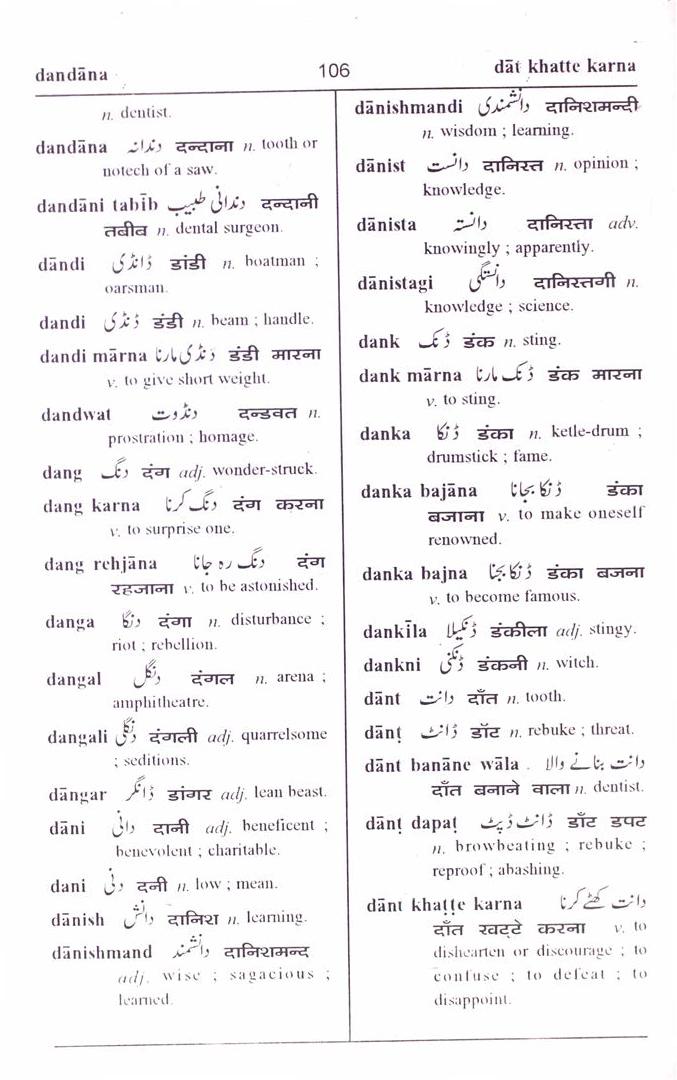 dandāna 106 dāt khatte karna
n. dentist.
dandāna دندانہ दन्दाना n. tooth or
notech of a saw.
dandāni tabīb دندانی طبیب दन्दानी
तबीब n. dental surgeon.
dāndi ڈانڈی डांडी n. boatman ;
oarsman.
dandi ڈنڈی डंडी n. beam ; handle.
dandi mārna ڈنڈی مارنا डंडी मारना
v. to give short weight.
dandwat دنڈوت दन्डवत n.
prostration ; homage.
dang دنگ दंग adj. wonder-struck.
dang karna دنگ کرنا दंग करना
v. to surprise one.
dang rehjāna دنگ رہ جانا दंग
रहजाना v. to be astonished.
danga دنگا दंगा n. disturbance ;
riot ; rebellion.
dangal دنگل दंगल n. arena ;
amphitheatre.
dangali دنگلی दंगली adj. quarrelsome
; seditions.
dāngar ڈانگر डांगर adj. lean beast.
dāni دانی दानी adj. beneficent ;
benevolent ; charitable.
dani دنی दनी n. low ; mean.
dānish دانش दानिश n. learning.
dānishmand دانشمند दानिशमन्द
adj. wise ; sagacious ;
learned.
dānishmandi دانشمندی दानिशमन्दी
n. wisdom ; learning.
dānist دانست दानिस्त n. opinion ;
knowledge.
dānista دانستہ दानिस्ता adv.
knowingly ; apparently.
dānistagi دانستگی दानिस्तगी n.
knowledge ; science.
dank ڈنک डंक n. sting.
dank mārna ڈنک مارنا डंक मारना
v. to sting.
danka ڈنکا डंका n. ketle-drum ;
drumstick ; fame.
danka bajāna ڈنکا بجانا डंका
बजाना v. to make oneself
renowned.
danka bajna ڈنکا بجنا डंका बजना
v. to become famous.
dankīla ڈنکیلا डंकीला adj. stingy.
dankni ڈنکنی डंकनी n. witch.
dānt دانت दाँत n. tooth.
dānṭ ڈانٹ डाँट n. rebuke ; threat.
dānt banāne wāla دانت بنانے والا
दाँत बनाने वाला n. dentist.
dānṭ dapaṭ ڈانٹ ڈپٹ डाँट डपट
n. browbeating ; rebuke ;
reproof ; abashing.
dānt khaṭṭe karna دانت کھٹے کرنا
दाँत खट्टे करना v. to
dishearten or discourage ; to
confuse ; to defeat ; to
disappoint.